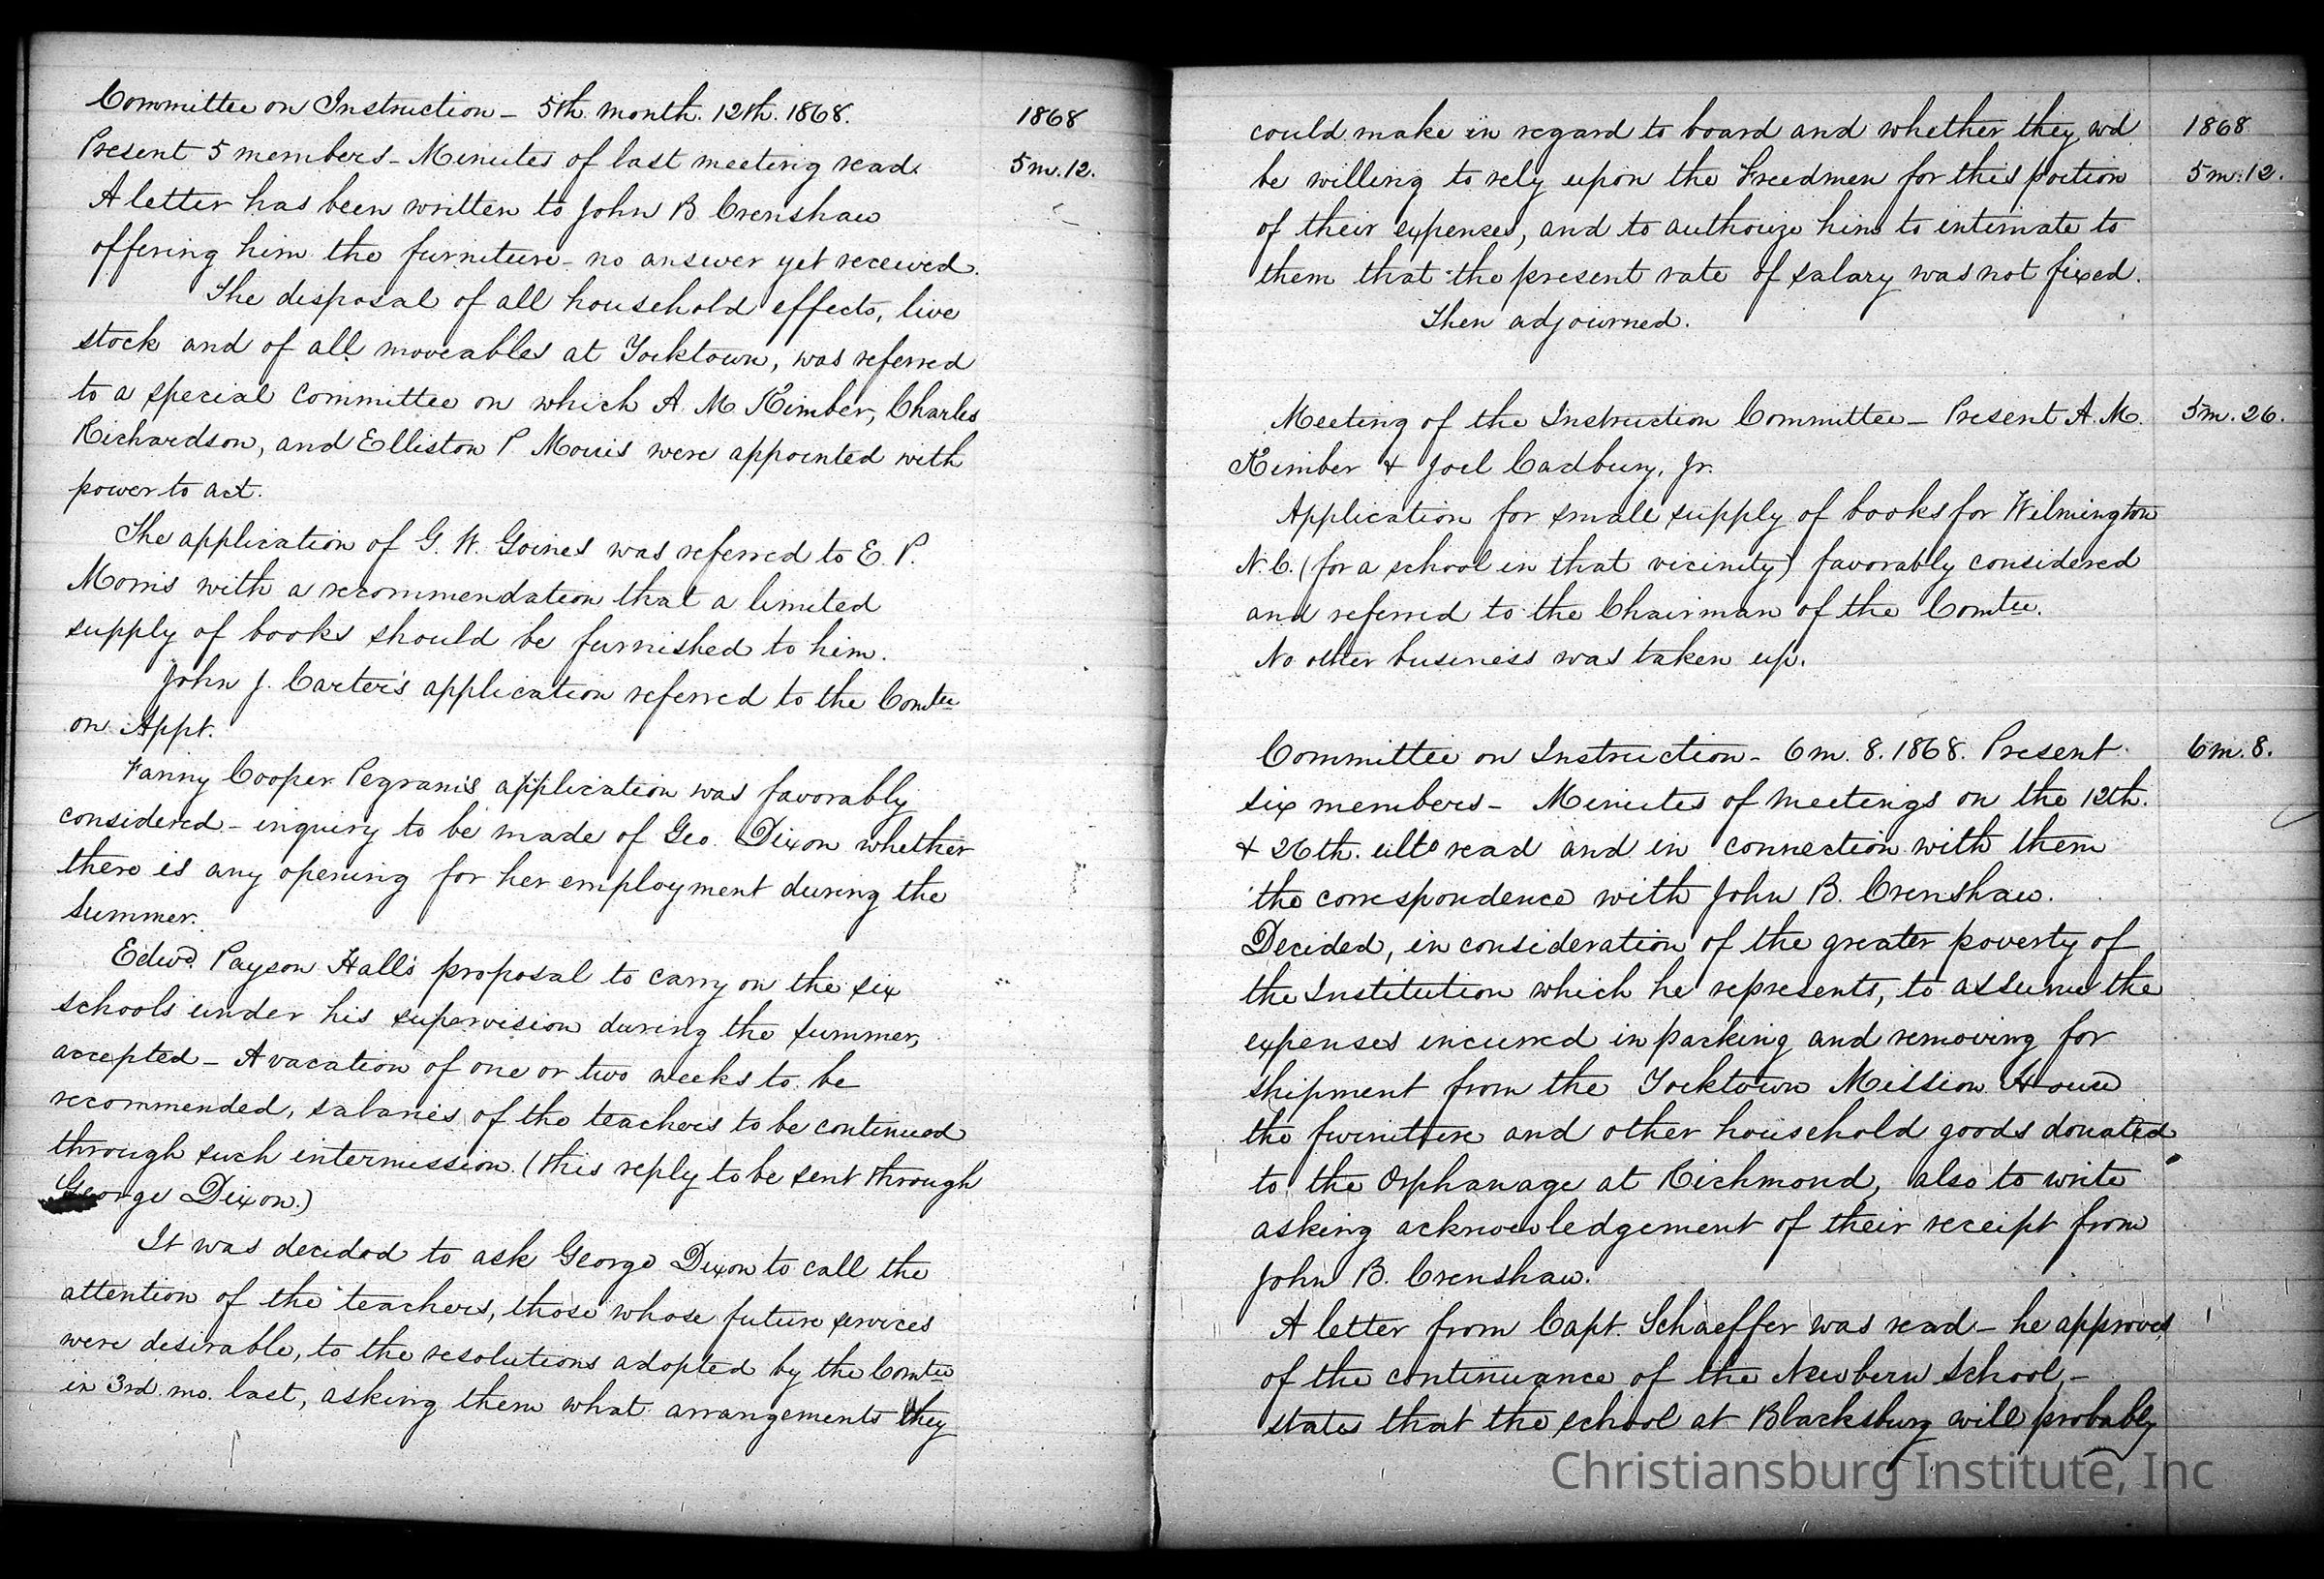 Committee on Instruction - 5th. month. 12th. 1868.
1868
Present 5 members - Minutes of last meeting read.
5m.12.
A letter has been written to John B Crenshaw
offering him the furniture - no answer yet received.
The disposal of all household effects, live
stock and of all moveables at Yorktown, was referred
to a special committee on which A. M. Kimber, Charles
Richardson, and Elliston P. Morris were appointed with
power to act.
The application of G. W. Goines was referred to E. P.
Morris with a recommendation that a limited
supply of books should be furnished to him.
John J. Carter's application referred to the Comtee
on Appt.
Fanny Cooper Pegram's application was favorably
considered - inquiry to be made of Geo. Dixon whether
there is any opening for her employment during the
Summer.
Edwd. Payson Hall's proposal to carry on the six
schools under his supervision during the summer,
accepted - A vacation of one or two weeks to be
recommended, salaries of the teachers to be continued
through such intermission. (this reply to be sent through
George Dixon.)
It was decided to ask George Dixon to call the
attention of the teachers, those whose future services
were desirable, to the resolutions adopted by the Comtee
in 3rd. mo. last, asking them what arrangements they
could make in regard to board and whether they wd
1868
be willing to rely upon the Freedmen for this portion
5m.12.
of their expenses, and to authorize him to intimate to
them that the present rate of salary was not fixed.
Then adjourned.
Meeting of the Instruction Committee - Present A. M.
5m.26.
Kimber & Joel Cadbury, Jr.
Application for small supply of books for Wilmington
N.C. (for a school in that vicinity) favorably considered
and referred to the Chairman of the Comtee.
No other business was taken up.
Committee on Instruction - 6m. 8. 1868. Present
6m.8.
six members - Minutes of meetings on the 12th.
& 26th. ulto read and in connection with them
the correspondence with John B. Crenshaw.
Decided, in consideration of the greater poverty of
the Institution which he represents, to assume the
expenses incurred in packing and removing for
shipment from the Yorktown Mission House
the furniture and other household goods donated
to the Orphanage at Richmond, also to write
asking acknowledgement of their receipt from
John B. Crenshaw.
A letter from Capt. Schaeffer was read - he approves
of the continuance of the Newbern School, -
states that the school at Blacksburg will probably
Christiansburg Institute, Inc